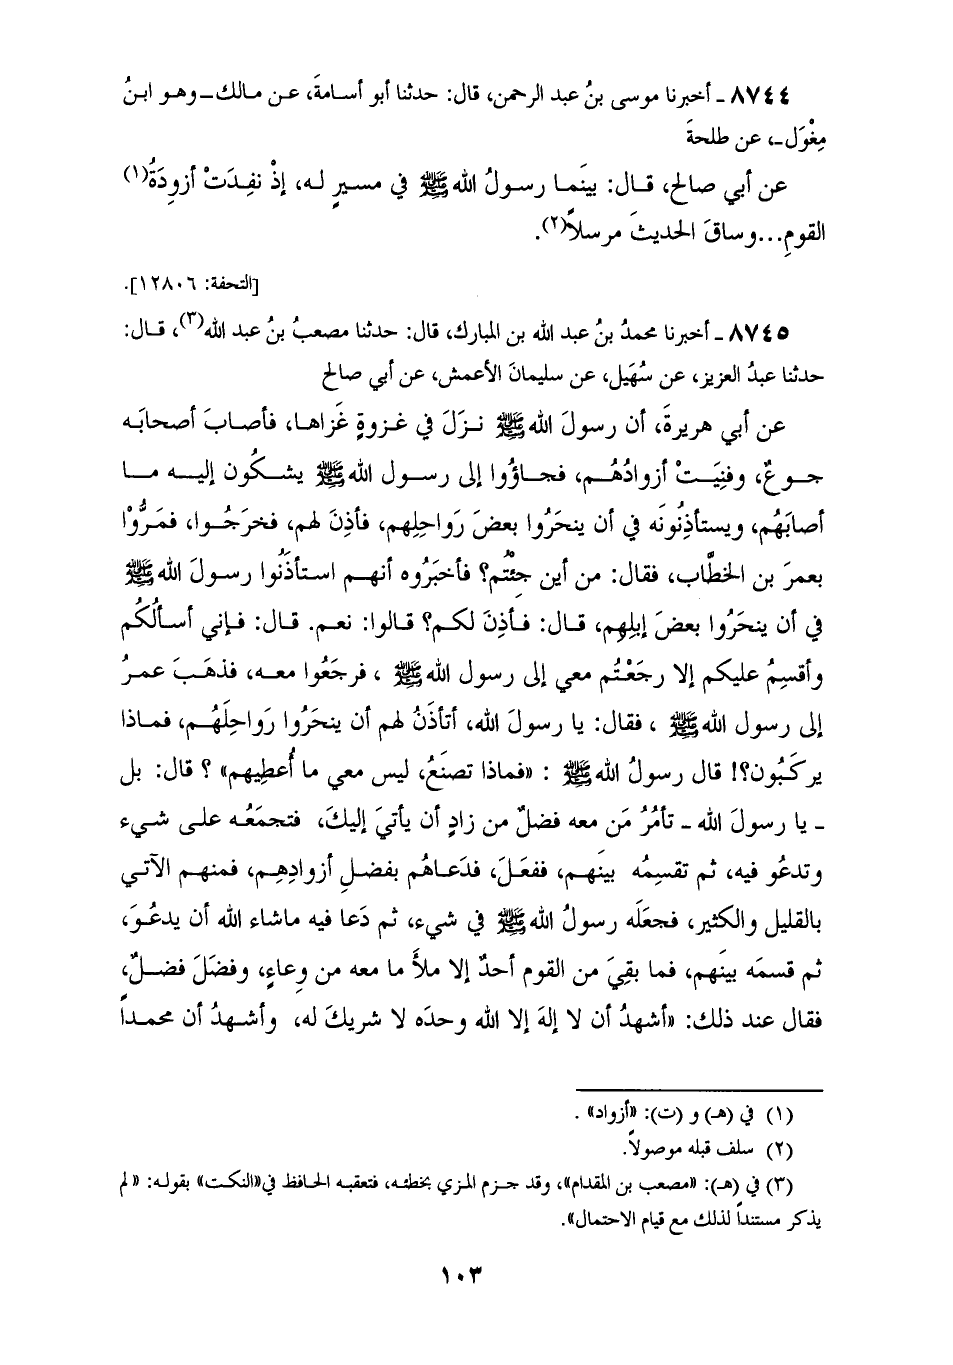 ٨٧٤٤ ـ أخبرنا موسى بنُ عبد الرحمن، قال: حدثنا أبو أسامةَ، عن مالك ـ وهو ابنُ
مِغْوَل ـ، عن طلحةَ
عن أبي صالح، قال: بينَما رسولُ الله ﷺ في مسيرٍ له، إذْ نفِدَتْ أزوِدَةُ(١)
القومِ... وساقَ الحديثَ مرسلاً(٢).
[التحفة: ١٢٨٠٦].
٨٧٤٥ ـ أخبرنا محمدُ بنُ عبد الله بن المبارك، قال: حدثنا مصعبُ بنُ عبد الله(٣)، قال:
حدثنا عبدُ العزيز، عن سُهَيل، عن سليمانَ الأعمش، عن أبي صالح
عن أبي هريرةَ، أن رسولَ الله ﷺ نزَلَ في غزوةٍ غَزاها، فأصابَ أصحابَه
جوعٌ، وفنِيَتْ أزوادُهُم، فجاؤُوا إلى رسول الله ﷺ يشكُون إليه ما
أصابَهُم، ويستأذِنُونَه في أن ينحَرُوا بعضَ رَواحِلِهم، فأذِنَ لهم، فخرَجُوا، فمَرُّوْا
بعمرَ بن الخطَّاب، فقال: من أين جِئْتُم؟ فأخبَرُوه أنهم استأذَنُوا رسولَ الله ﷺ
في أن ينحَرُوا بعضَ إبلِهِم، قال: فأذِنَ لكم؟ قالوا: نعم. قال: فإني أسألُكُم
وأقسِمُ عليكم إلا رجَعْتُم معي إلى رسول الله ﷺ ، فرجَعُوا معه، فذهَبَ عمرُ
إلى رسول الله ﷺ ، فقال: يا رسولَ الله، أتأذَنُ لهم أن ينحَرُوا رَواحِلَهُم، فماذا
يركَبُون؟! قال رسولُ الله ﷺ : «فماذا تصنَعُ، ليس معي ما أُعطِيهم» ؟ قال: بل
ـ يا رسولَ الله ـ تأمُرُ مَن معه فضلٌ من زادٍ أن يأتيَ إليكَ، فتجمَعُه على شيء
وتدعُو فيه، ثم تقسِمُه بينَهم، ففعَلَ، فدَعاهُم بفضلِ أزوادِهِم، فمنهم الآتي
بالقليل والكثير، فجعَلَه رسولُ الله ﷺ في شيء، ثم دَعا فيه ماشاء الله أن يدعُوَ،
ثم قسمَه بينَهم، فما بقِيَ من القوم أحدٌ إلا ملأَ ما معه من وِعاءٍ، وفضَلَ فضلٌ،
فقال عند ذلك: «أشهدُ أن لا إلهَ إلا الله وحدَه لا شريكَ له، وأشهدُ أن محمداً
(١) في (هـ) و (ت): «أزواد» .
(٢) سلف قبله موصولاً.
(٣) في (هـ): «مصعب بن المقدام»، وقد جزم المزي بخطئه، فتعقبه الحافظ في«النكت» بقوله: «لم
يذكر مستنداً لذلك مع قيام الاحتمال».
١٠٣